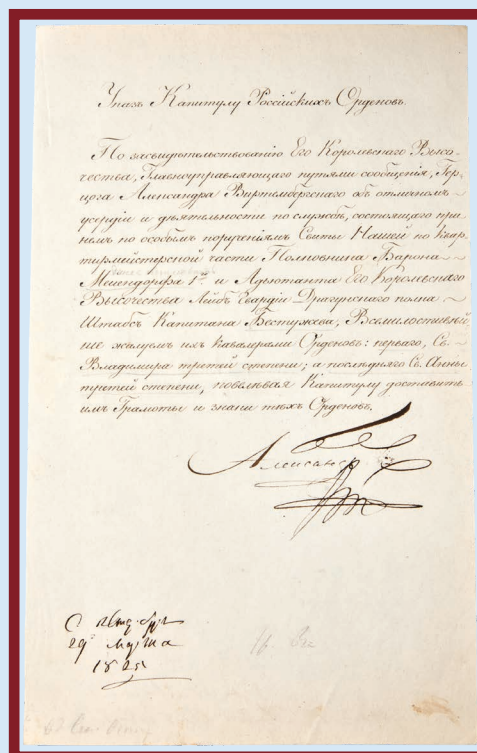 Указъ Капитулу Россійскихъ Орденовъ.
По засвидѣтельствованію Его Королевскаго Высо-
чества, Главноуправляющаго путями сообщенія, Гер-
цога Александра Виртембергскаго объ отличномъ
усердіи и дѣятельности по службѣ, состоящаго при
немъ по особымъ порученіямъ Свиты Нашей по Квар-
тирмейстерской части Полковника Барона
Мейендорфа 1го и Адъютанта Его Королевскаго
Высочества Лейбъ Гвардіи Драгунскаго полка
Штабсъ Капитана Бестужева, Всемилостивѣй-
ше жалуемъ ихъ Кавалерами Орденовъ: перваго, Св.
Владимира третей степени; а послѣдняго Св. Анны
третей степени, повелѣвая Капитулу доставить
имъ Грамоты и знаки тѣхъ Орденовъ.
Александръ
29го
1825